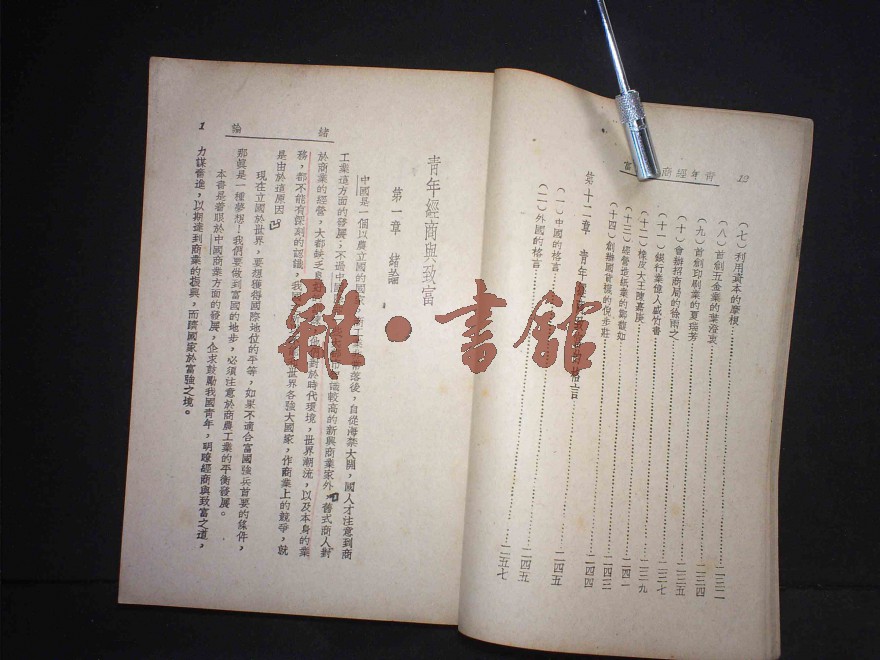 12
青年經商
富
（七）利用資本的摩根……一三二
（八）首創五金業的葉澄衷……一三四
（九）首創印刷業的夏瑞芳……一三五
（十）會辦招商局的徐雨之……一三七
（十一）銀行業偉人盛竹書……一三九
（十二）橡皮大王陳嘉庚……一四一
（十三）經營造紙業的鄭馥如……一四二
（十四）創辦國貨襪的倪步莊……一四四
第十二章 青年經商 的格言
（一）中國的格言……一四五
（二）外國的格言……一五七
緒論
1
青年經商與致富
第一章 緒論
中國是一個以農立國的國 落後，自從海禁大開，國人才注意到商
工業這方面的發展；不過中 識較高的新興商業家外，舊式商人對
於商業的經營，大都缺乏 對於時代環境，世界潮流，以及本身的業
務，都不能有深刻的認識，我 世界各強大國家，作商業上的競爭，就
是由於這原因。
現在立國於世界，要想獲得國際地位的平等，如果不適合富國強兵首要的條件，
那眞是一種夢想！我們要做到富國的地步，必須注意於商農工業的平衡發展。
本書是着眼於中國商業方面的發展，企求鼓勵我國青年，明瞭經商與致富之道，
力謀奮進，以期達到商業的振興，而躋國家於富強之境。
雜·書館